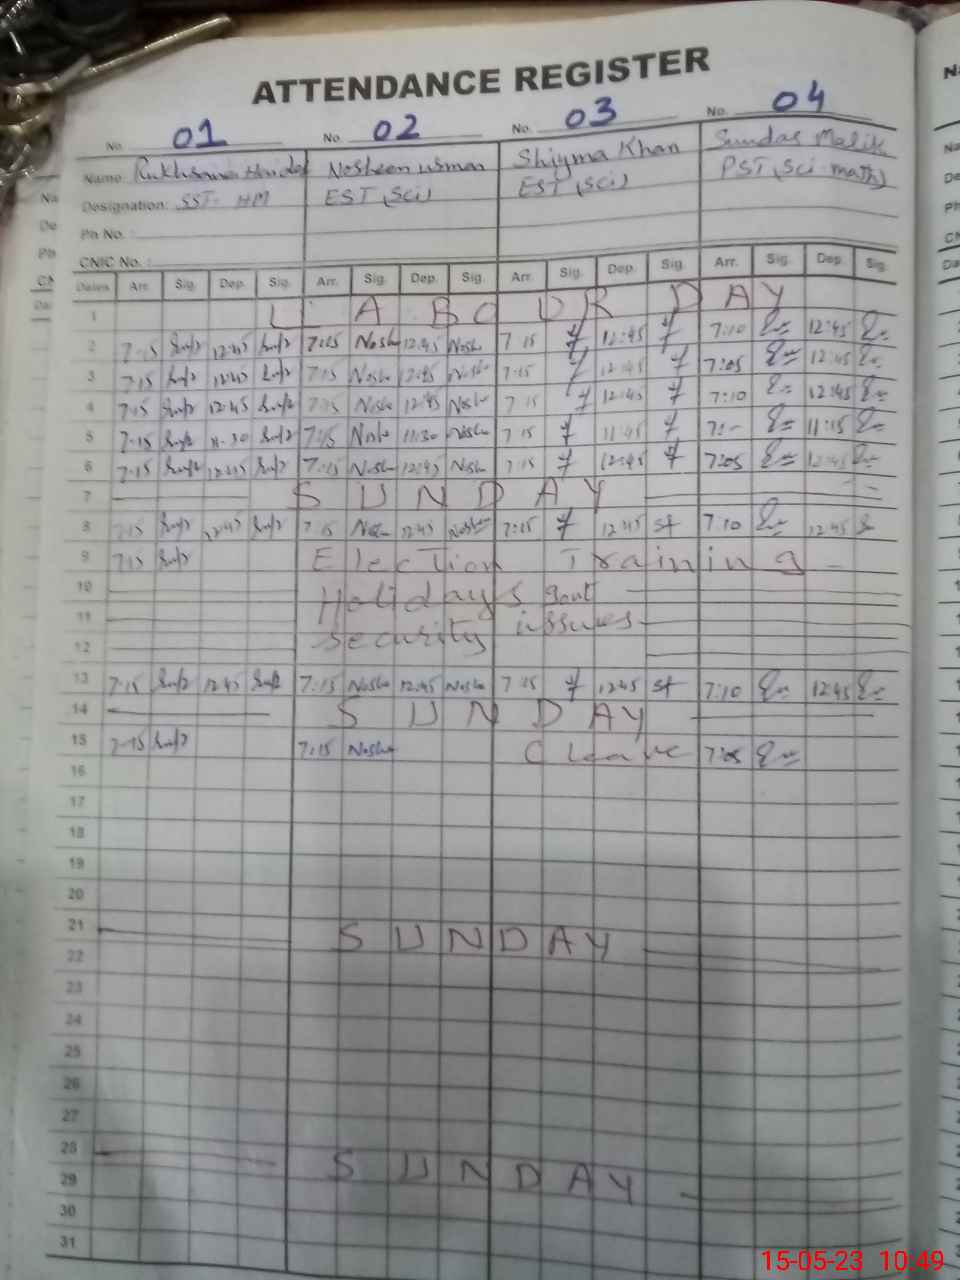 ATTENDANCE REGISTER
No. 01 No. 02 No. 03 No. 04
Name: Nosheen Usman Shiyma Khan Sundas Malik
Designation: SST- HM EST (Sci) EST (Sci) PST (Sci-math)
Ph No. :
CNIC No. :
Dates Arr. Sig. Dep. Sig. Arr. Sig. Dep. Sig. Arr. Sig. Dep. Sig. Arr. Sig. Dep. Sig.
1 LABOUR DAY
2 7-15 12:45 7:15 Nosh 12:45 Nosh 7 15 12:45 7:10 12:45
3 7-15 12:45 7:15 Nosh 12:45 Nosh 7:15 12:45 7:05 12:45
4 7-15 12:45 7:15 Nosh 12:45 Nosh 7 15 12:45 7:10 12:45
5 7-15 11-30 7:15 Nosh 11:30 Nosh 7 15 11:45 7:- 11:15
6 7-15 12:45 7:15 Nosh 12:45 Nosh 7:15 12:45 7:05 12:45
7 SUNDAY
8 7:15 12:45 7:15 Nosh 12:45 Nosh 7:15 12:45 st 7:10 12:45
9 7:15 Election Training
10 Holidays Gout
11 security issues
12
13 7-15 12:45 7:15 Nosh 12:45 Nosh 7:15 1245 st 7:10 12:45
14 SUNDAY
15 7-15 7:15 Nosh C leave 7:05
16
17
18
19
20
21 SUNDAY
22
23
24
25
26
27
28 SUNDAY
29
30
31
15-05-23 10:49